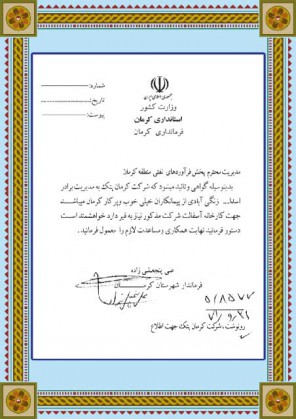 شماره:
تاریخ:
پیوست:
جمهوری اسلامی ایران
وزارت کشور
استانداری کرمان
فرمانداری کرمان
مدیریت محترم پخش فرآوردهای نفتی منطقه کرمان
بدینوسیله گواهی و تائید میشود که شرکت کرمان پتک به مدیریت برادر
اسدا... زنگی آبادی از پیمانکاران خیلی خوب وپرکار کرمان میباشند
جهت کارخانه آسفالت شرکت مذکور نیاز به قیر دارد خواهشمند است
دستور فرمائید نهایت همکاری ومساعدت لازم را معمول فرمائید.
علی پنجعلی زاده
فرماندار شهرستان کرمان
رونوشت: شرکت کرمان پتک جهت اطلاع